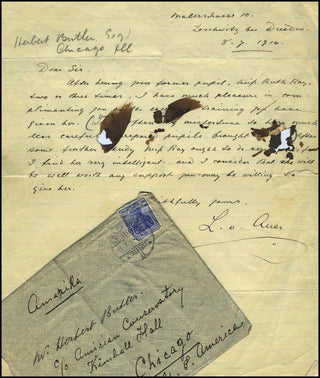 Malterstrasse 10.
Loschwitz bei Dresden
8.7.1914.
Herbert Butler, Esq
Chicago Ill
Dear Sir,
After hearing your former pupil, Miss Ruth Ray,
two or three times, I have much pleasure in com
plimenting you training you have
given her misfortune to much
less carefully pupils brought
some further study Miss Ray ought to do
I find her very intelligent, and I consider that she will
be well worth any support you may be willing to
give her.
faithfully yours,
L. v. Auer
Amerika
Mr. Herbert Butler.
c/o American Conservatory
Kimball Hall
Chicago
S. America